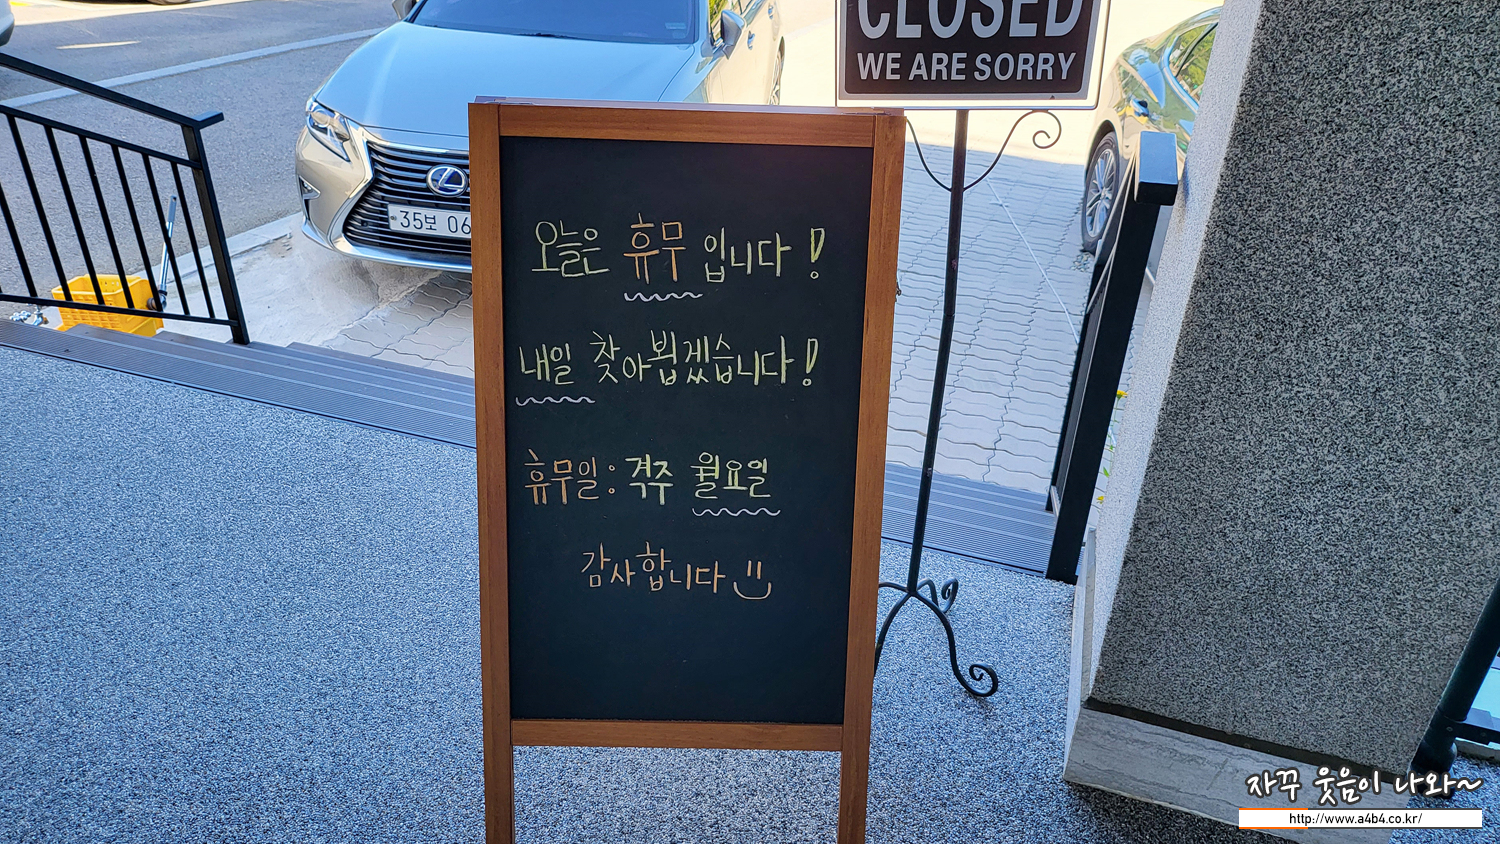 CLOSED
WE ARE SORRY
35보 06
오늘은 휴무 입니다!
내일 찾아뵙겠습니다!
휴무일: 격주 월요일
감사합니다
자꾸 웃음이 나와~
http://www.a4b4.co.kr/